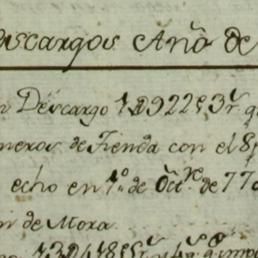 escargos Año de
n Descargo 1 D 922 r^s 3 m^r q
neros de Tienda con el 8
echo en 1.º de Oct^re de 77
n de Mora.